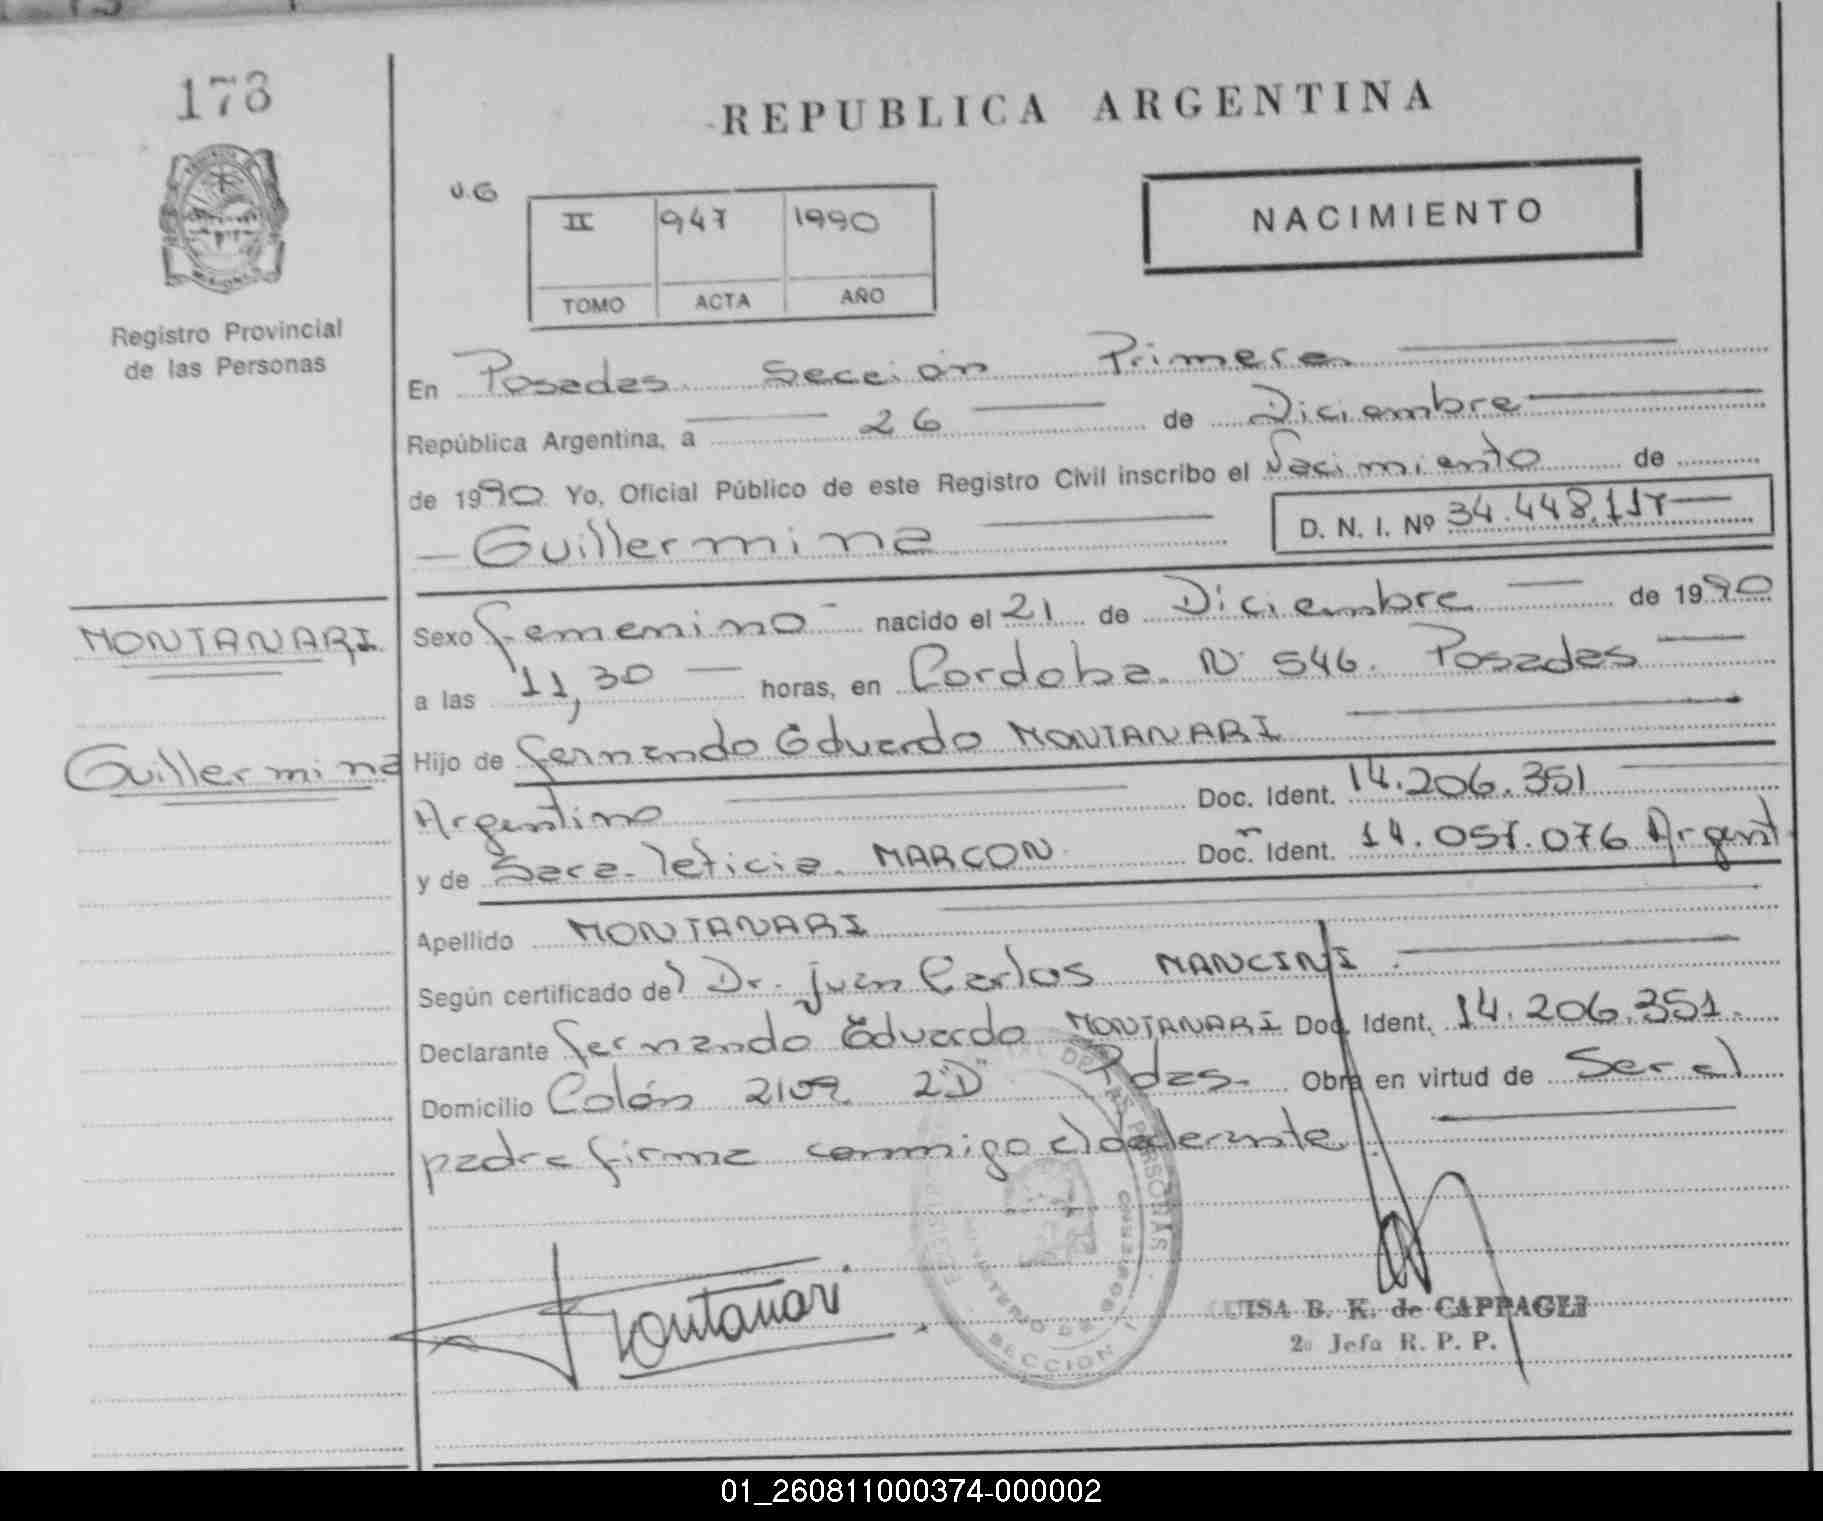 173
REPUBLICA ARGENTINA
Registro Provincial
de las Personas
II 947 1990
TOMO ACTA AÑO
NACIMIENTO
En Posadas Sección Primera
República Argentina, a 26 de Diciembre
de 1990 Yo, Oficial Público de este Registro Civil inscribo el Nacimiento de
Guillermina D. N. I. Nº 34.448.117
MONTANARI
Guillermina
Sexo femenino nacido el 21 de Diciembre de 1990
a las 11,30 horas, en Cordoba N° 546. Posadas
Hijo de Fernando Eduardo MONTANARI
Argentino Doc. Ident. 14.206.351
y de Sara Leticia MARCON Doc. Ident. 14.057.076 Argent
Apellido MONTANARI
Según certificado del Dr. Juan Carlos MANCINI
Declarante Fernando Eduardo MONTANARI Doc. Ident. 14.206.351.
Domicilio Colón 2109 2"D" Pdas. Obra en virtud de Ser el
padre firma conmigo el declarante.
Montanari
SECCION I
LUISA B. K. de CAPPAGLI
2a Jefa R. P. P.
01_260811000374-000002